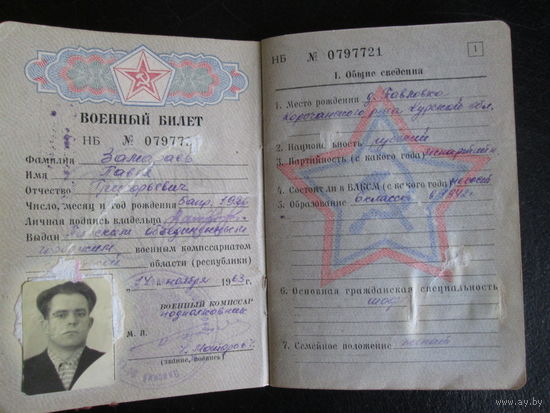 ВОЕННЫЙ БИЛЕТ
НБ № 0797721
Фамилия Замараев
Имя Павел
Отчество Григорьевич
Число, месяц и год рождения 5 апр. 1926
Личная подпись владельца
Выдан объединенным
городским военным комиссариатом
области (республики)
"14" ноября 1963 г.
ВОЕННЫЙ КОМИССАР
подполковник
М. П.
(звание, подпись)
НБ № 0797721
1
I. Общие сведения
1. Место рождения д. Павловка
Корочанского р-на Курской обл.
2. Национальность русский
3. Партийность (с какого года) беспартийн
4. Состоит ли в ВЛКСМ (с какого года)
5. Образование 6 классов в 1942 г.
6. Основная гражданская специальность
шофер
7. Семейное положение женат
www.ay.by